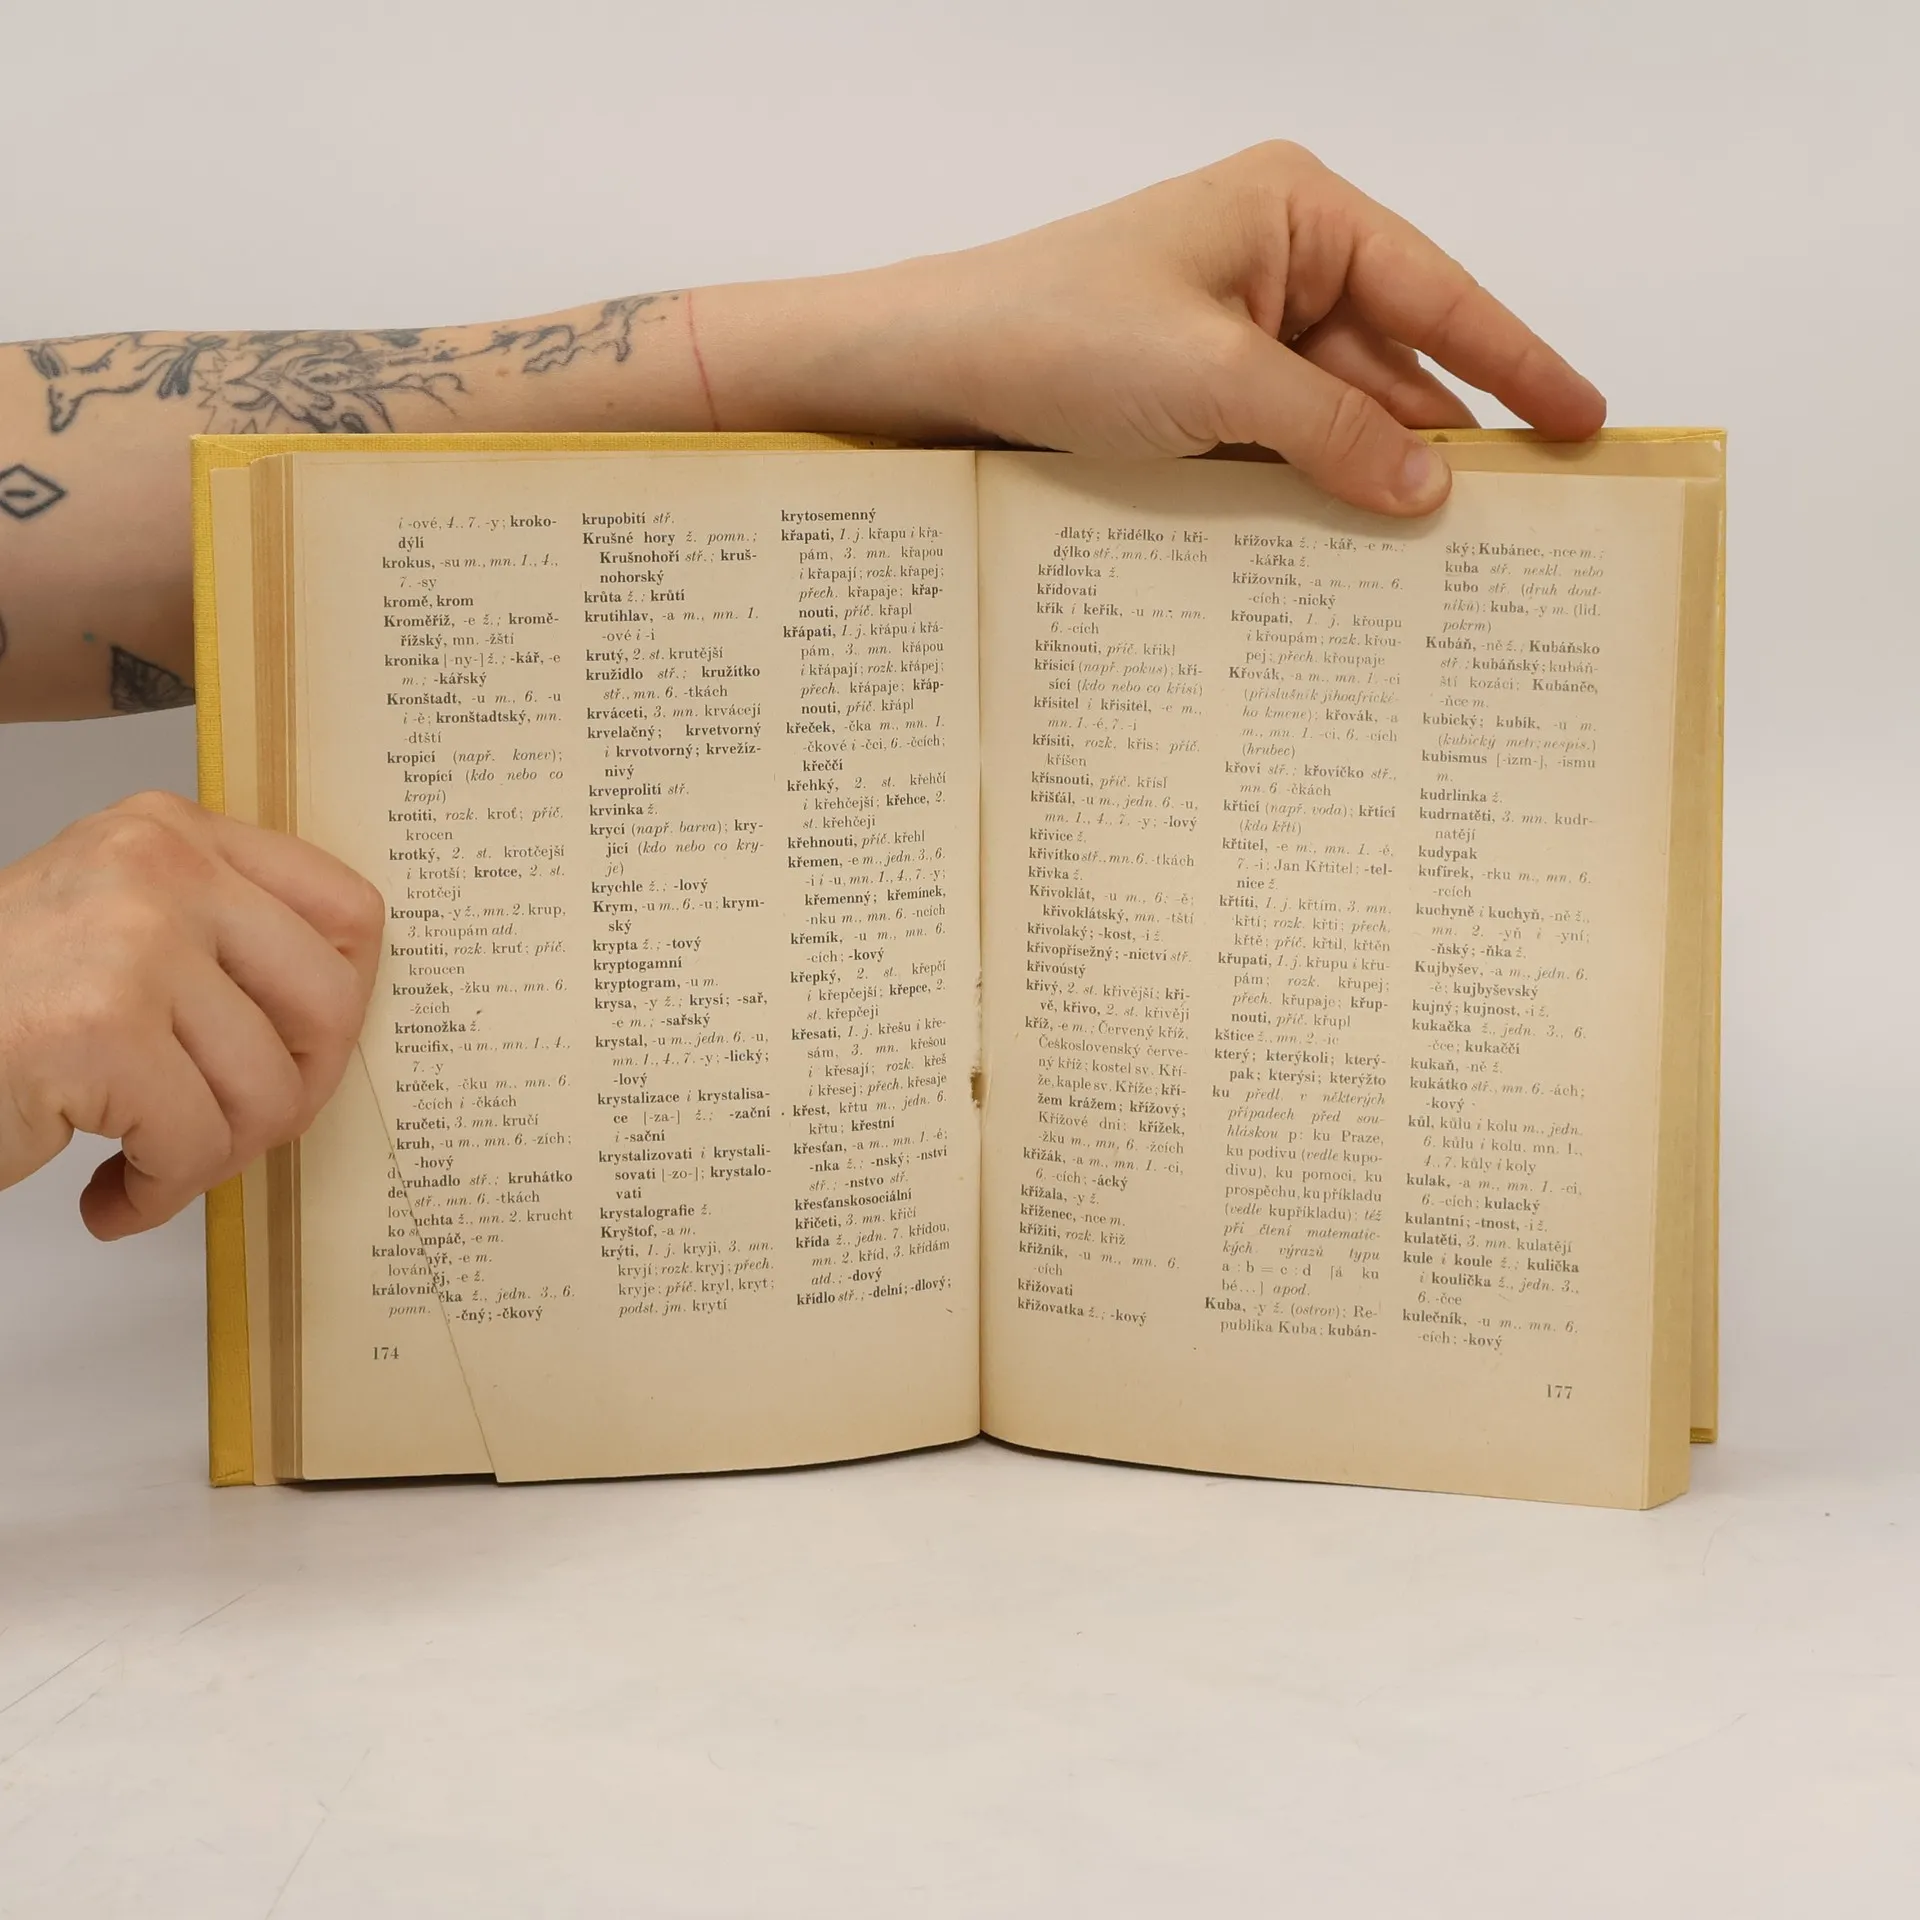 i -ové, 4., 7. -y; kroko-
dýli
krokus, -su m., mn. 1., 4.,
7. -sy
kromě, krom
Kroměříž, -e ž.; kromě-
řížský, mn. -žští
kronika [-ny-] ž.; -kář, -e
m.; -kářský
Kronštadt, -u m., 6. -u
i -ě; kronštadtský, mn.
-dtští
kropicí (např. konev);
kropící (kdo nebo co
kropí)
krotiti, rozk. kroť; příč.
krocen
krotký, 2. st. krotčejší
i krotší; krotce, 2. st.
krotčeji
kroupa, -y ž., mn. 2. krup,
3. kroupám atd.
kroutiti, rozk. kruť; příč.
kroucen
kroužek, -žku m., mn. 6.
-žcích
krtonožka ž.
krucifix, -u m., mn. 1., 4.,
7. -y
krůček, -čku m., mn. 6.
-čcích i -čkách
kručeti, 3. mn. kručí
kruh, -u m., mn. 6. -zích;
-hový
ruhadlo stř.; kruhátko
stř., mn. 6. -tkách
uchta ž., mn. 2. krucht
mpáč, -e m.
nýř, -e m.
ěj, -e ž.
čka ž., jedn. 3., 6.
; -čný; -čkový
lov
ko s
kralova
lován
královnič
pomn.
174
krupobití stř.
Krušné hory ž. pomn.;
Krušnohoří stř.; kruš-
nohorský
krůta ž.; krůtí
krutihlav, -a m., mn. 1.
-ové i -i
krutý, 2. st. krutější
kružidlo stř.; kružítko
stř., mn. 6. -tkách
krváceti, 3. mn. krvácejí
krvelačný; krvetvorný
i krvotvorný; krvežíz-
nivý
krveprolití stř.
krvinka ž.
krycí (např. barva); kry-
jící (kdo nebo co kry-
je)
krychle ž.; -lový
Krym, -u m., 6. -u; krym-
ský
krypta ž.; -tový
kryptogamní
kryptogram, -u m.
krysa, -y ž.; krysí; -sař,
-e m.; -sařský
krystal, -u m., jedn. 6. -u,
mn. 1., 4., 7. -y; -lický;
-lový
krystalizace i krystalisa-
ce [-za-] ž.; -zační
i -sační
krystalizovati i krystali-
sovati [-zo-]; krystalo-
vati
krystalografie ž.
Kryštof, -a m.
krýti, 1. j. kryji, 3. mn.
kryjí; rozk. kryj; přech.
kryje; příč. kryl, kryt;
podst. jm. krytí
krytosemenný
křapati, 1. j. křapu i křa-
pám, 3. mn. křapou
i křapají; rozk. křapej;
přech. křapaje; křap-
nouti, příč. křapl
křápati, 1. j. křápu i křá-
pám, 3. mn. křápou
i křápají; rozk. křápej;
přech. křápaje; křáp-
nouti, příč. křápl
křeček, -čka m., mn. 1.
-čkové i -čci, 6. -čcích;
křeččí
křehký, 2. st. křehčí
i křehčejší; křehce, 2.
st. křehčeji
křehnouti, příč. křehl
křemen, -e m., jedn. 3., 6.
-i i -u, mn. 1., 4., 7. -y;
křemenný; křemínek,
-nku m., mn. 6. -ncích
křemík, -u m., mn. 6.
-cích; -kový
křepký, 2. st. křepčí
i křepčejší; křepce, 2.
st. křepčeji
křesati, 1. j. křešu i kře-
sám, 3. mn. křešou
i křesají; rozk. křeš
i křesej; přech. křesaje
křest, křtu m., jedn. 6.
křtu; křestní
křesťan, -a m., mn. 1. -é;
-nka ž.; -nský; -nství
stř.; -nstvo stř.
křesťanskosociální
křičeti, 3. mn. křičí
křída ž., jedn. 7. křídou,
mn. 2. kříd, 3. křídám
atd.; -dový
křídlo stř.; -delní; -dlový;
-dlatý; křidélko i kří-
dýlko stř., mn. 6. -lkách
křídlovka ž.
křídovati
křik i keřík, -u m., mn.
6. -cích
křiknouti, příč. křikl
křísicí (např. pokus); kří-
sící (kdo nebo co křísí)
křisitel i křísitel, -e m.,
mn. 1. -é, 7. -i
křísiti, rozk. křis; příč.
kříšen
křísnouti, příč. křísl
křišťál, -u m., jedn. 6. -u,
mn. 1., 4., 7. -y; -lový
křivice ž.
křivítko stř., mn. 6. -tkách
křivka ž.
Křivoklát, -u m., 6. -ě;
křivoklátský, mn. -tští
křivolaký; -kost, -i ž.
křivopřísežný; -nictví stř.
křivoústý
křivý, 2. st. křivější; kři-
vě, křivo, 2. st. křivěji
kříž, -e m.; Červený kříž,
Československý červe-
ný kříž; kostel sv. Kří-
že, kaple sv. Kříže; kří-
žem krážem; křížový;
Křížové dni; křížek,
-žku m., mn. 6. -žcích
křižák, -a m., mn. 1. -ci,
6. -cích; -ácký
křížala, -y ž.
kříženec, -nce m.
křížiti, rozk. křiž
křižník, -u m., mn. 6.
-cích
křižovati
křižovatka ž.; -kový
křížovka ž.; -kář, -e m.;
-kářka ž.
křižovník, -a m., mn. 6.
-cích; -nický
křoupati, 1. j. křoupu
i křoupám; rozk. křou-
pej; přech. křoupaje
Křovák, -a m., mn. 1. -ci
(příslušník jihoafrické-
ho kmene); křovák, -a
m., mn. 1. -ci, 6. -cích
(hrubec)
křoví stř.; křovíčko stř.,
mn. 6. -čkách
křticí (např. voda); křtící
(kdo křtí)
křtitel, -e m., mn. 1. -é,
7. -i; Jan Křtitel; -tel-
nice ž.
křtíti, 1. j. křtím, 3. mn.
křtí; rozk. křti; přech.
křtě; příč. křtil, křtěn
křupati, 1. j. křupu i křu-
pám; rozk. křupej;
přech. křupaje; křup-
nouti, příč. křupl
kštice ž., mn. 2. -ic
který; kterýkoli; který-
pak; kterýsi; kterýžto
ku předl. v některých
případech před sou-
hláskou p: ku Praze,
ku podivu (vedle kupo-
divu), ku pomoci, ku
prospěchu, ku příkladu
(vedle kupříkladu); též
při čtení matematic-
kých výrazů typu
a : b = c : d [á ku
bé...] apod.
Kuba, -y ž. (ostrov); Re-
publika Kuba; kubán-
ský; Kubánec, -nce m.;
kuba stř. neskl. nebo
kubo stř. (druh dout-
níků); kuba, -y m. (lid.
pokrm)
Kubáň, -ně ž.; Kubáňsko
stř.; kubáňský; kubáň-
ští kozáci; Kubáněc,
-ňce m.
kubický; kubík, -u m.
(kubický metr; nespis.)
kubismus [-izm-], -ismu
m.
kudrlinka ž.
kudrnatěti, 3. mn. kudr-
natějí
kudypak
kufírek, -rku m., mn. 6.
-rcích
kuchyně i kuchyň, -ně ž.,
mn. 2. -yň i -yní;
-ňský; -ňka ž.
Kujbyšev, -a m., jedn. 6.
-ě; kujbyševský
kujný; kujnost, -i ž.
kukačka ž., jedn. 3., 6.
-čce; kukaččí
kukaň, -ně ž.
kukátko stř., mn. 6. -ách;
-kový
kůl, kůlu i kolu m., jedn.
6. kůlu i kolu, mn. 1.,
4., 7. kůly i koly
kulak, -a m., mn. 1. -ci,
6. -cích; kulacký
kulantní; -tnost, -i ž.
kulatěti, 3. mn. kulatějí
kule i koule ž.; kulička
i koulička ž., jedn. 3.,
6. -čce
kulečník, -u m., mn. 6.
-cích; -kový
177